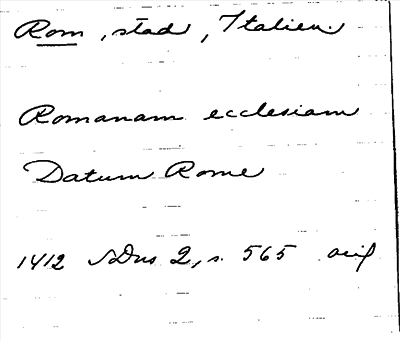 Rom, stad, Italien.
Romanam ecclesiam
Datum Rome
1412 SDns 2, s. 565 orig